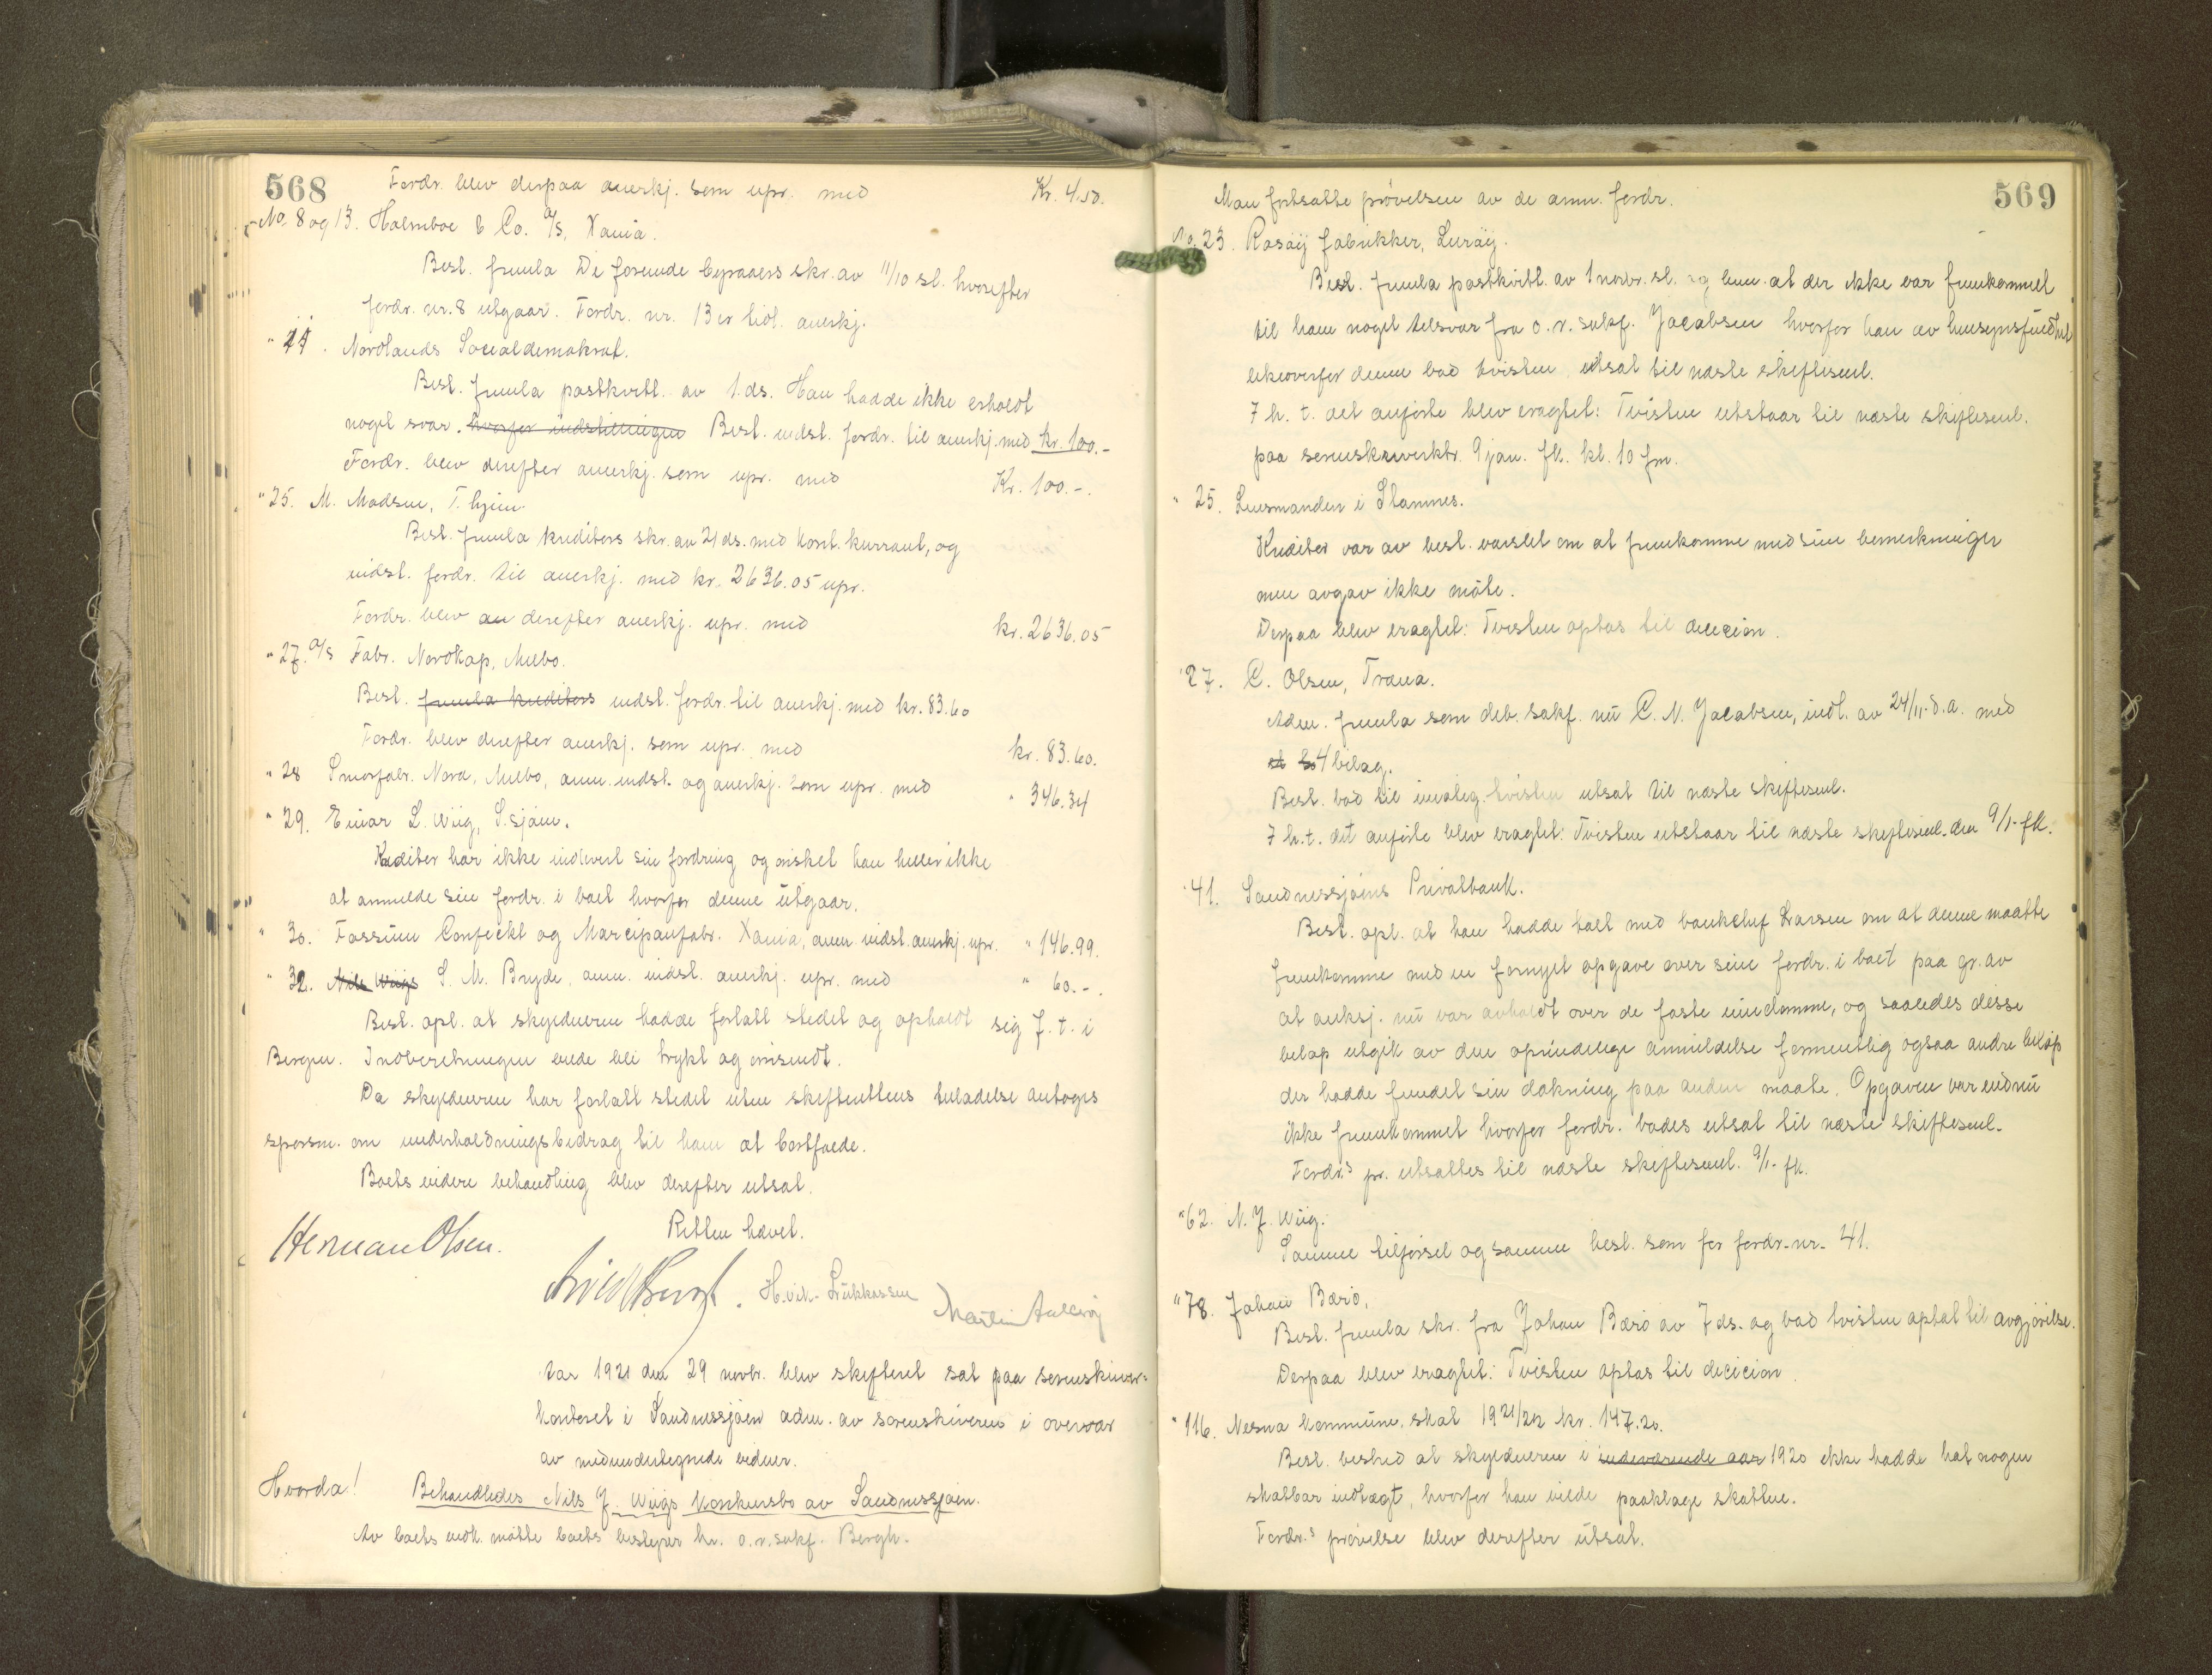 568
Fordr. blev derpaa anerkj. som upr. med Kr. 4.50.
No. 8 og 13. Holmboe & Co. A/S, Xania.
Best. freml. De forenede byraaers skr. av 11/10 sl. hvorefter
fordr. nr. 8 utgaar. Fordr. nr. 13 er tidl. anerkj.
" Nordlands Socialdemokrat.
Best. freml. postkvitt. av 1. ds. Han hadde ikke erholdt
noget svar. hvorfor indstillingen Best. indst. fordr. til anerkj. med kr. 100.-
Fordr. blev derefter anerkj. som upr. med Kr. 100.-.
" 25. M. Madsen, T.hjem.
Best. freml. kreditors skr. av 21 ds. med kont. kurrant, og
indst. fordr. til anerkj. med kr. 2636.05 upr.
Fordr. blev an derefter anerkj. upr. med kr. 2636.05
" 27. A/S Fabr. Nordkap, Melbo.
Best. freml. kreditors indst. fordr. til anerkj. med kr. 83.60
Fordr. blev derefter anerkj. som upr. med kr. 83.60.
" 28 Smørfabr. Nora, Melbo, anm. indst. og anerkj. som upr. med " 346.34
" 29. Einar L. Wiig, S.sjøen.
Kreditor har ikke indlevert sin fordring og ønsket han heller ikke
at anmelde sin fordr. i boet hvorfor denne utgaar.
" 30. Fossum Confeckt og Marcipanfabr. Xania, anm. indst. anerkj. upr. " 146.99.
" 32. Nils Wiigs S. M. Bryde, anm. indst. anerkj. upr. med " 60.-.
Best. opl. at skyldneren hadde forlatt stedet og opholdt sig f. t. i
Bergen. Indberetningen vilde bli trykt og omsendt.
Da skyldneren har forlatt stedet uten skifterettens tilladelse antoges
spørsm. om underholdningsbidrag til ham at bortfalde.
Boets videre behandling blev derefter utsat.
Retten hævet.
Herman Olsen.
Arvid Bergh. H. vik. Lükkassen Martin
Aar 1921 den 29 novbr. blev skifteret sat paa sorenskriver=
kontoret i Sandnessjøen adm. av sorenskriveren i overvær
av medundertegnede vidner.
Hvorda!
Behandledes Nils J. Wiigs konkursbo av Sandnessjøen.
Av boets vedk. møtte boets bestyrer hr. o.r.sakf. Bergh.
569
Man fortsatte prøvelsen av de anm. fordr.
No. 23. Rosøy fabrikker, Lurøy.
Best. freml. postkvitt. av 1 novbr. sl. og bem. at der ikke var fremkommet
til ham noget tilsvar fra o.r. sakf. Jacobsen hvorfor han av hensynsfuldhet
likeoverfor denne bad tvisten utsat til næste skiftesml.
I h. t. det anførte blev eragtet: Tvisten utstaar til næste skiftesml.
paa sorenskriverktr. 9 jan. fk. kl. 10 fm.
" 25. Lensmanden i Stamnes.
Kreditor var av best. varslet om at fremkomme med sine bemerkninger
men avgav ikke møte.
Derpaa blev eragtet: Tvisten optas til decision.
" 27. C. Olsen, Træna.
Adm. freml. som deb. sakf. nu C. N. Jacobsen, indl. av 24/11 d.a. med
4 bilag.
Best. bad til imøteg. tvisten utsat til næste skiftesml.
I h. t. det anførte blev eragtet: Tvisten utstaar til næste skiftesml. den 9/1- fk.
" 41. Sandnessjøens Privatbank.
Best. opl. at han hadde talt med bankchef Larsen om at denne maatte
fremkomme med en fornyet opgave over sine fordr. i boet paa gr. av
at auksj. nu var avholdt over de faste eiendomme, og saaledes disse
beløp utgik av den oprindelige anmeldelse formentlig ogsaa andre beløp
der hadde fundet sin dækning paa anden maate. Opgaven var endnu
ikke fremkommet hvorfor fordr. bades utsat til næste skiftesml.
Fordr.s pr. utsattes til næste skiftesml. 9/1- fk.
" 62. N. J. Wiig.
Samme tilførsel og samme besl. som for fordr. nr. 41.
" 78. Johan Bærø.
Best. freml. skr. fra Johan Bærø av 7 ds. og bad tvisten optat til avgjørelse.
Derpaa blev eragtet: Tvisten optas til decicion.
" 116. Nesna kommune. skat 1921/22 kr. 147.20.
Best. bestred at skyldneren i indeværende aar 1920 ikke hadde hat nogen
skatbar indtægt, hvorfor han vilde paaklage skatten.
Fordr.s prøvelse blev derefter utsat.